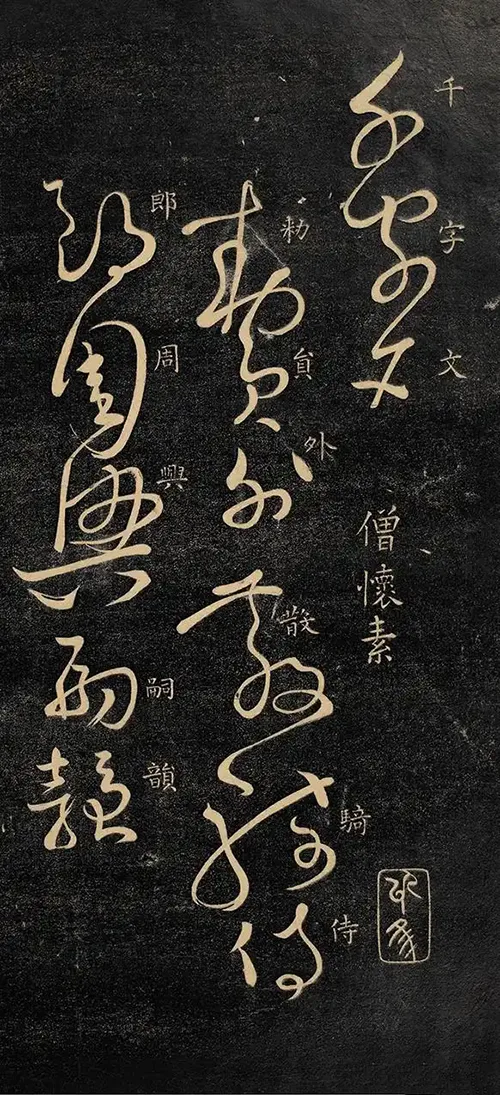 千字文
千字文
僧懷素
勅貟外散騎侍
勅貟外散騎侍
郎周興嗣韻
郎周興嗣韻